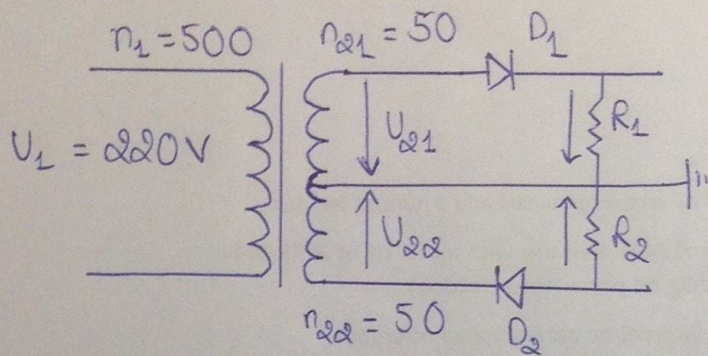 n₁ = 500
n₂₁ = 50
D₁
U₁ = 220V
U₂₁
R₁
U₂₂
R₂
n₂₂ = 50
D₂